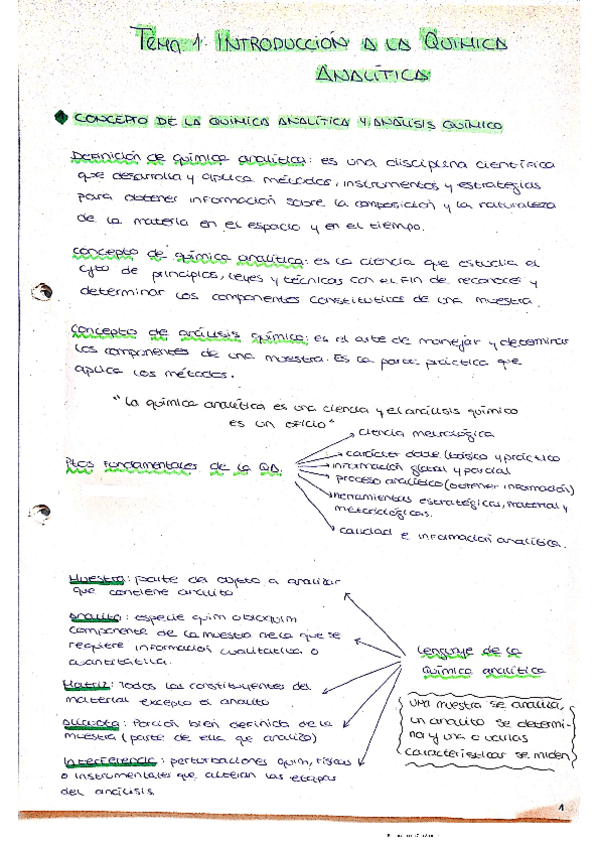 TEMA 1. INTRODUCCIÓN A LA QUIMICA
ANALÍTICA
CONCEPTO DE LA QUIMICA ANALÍTICA Y ANÁLISIS QUÍMICO
Definición de química analítica: es una disciplina científica
que desarrolla y aplica métodos, instrumentos y estrategias
para obtener información sobre la composición y la naturaleza
de la materia en el espacio y en el tiempo.
Concepto de química analítica: es la ciencia que estudia el
cjto de principios, leyes y técnicas con el fin de reconocer y
determinar los componentes constitutivos de una muestra.
Concepto de análisis químico: es el arte de manejar y determinar
los componentes de una muestra. Es la parte práctica que
aplica los métodos.
"La química analítica es una ciencia y el análisis químico
es un oficio"
Ptos Fundamentales de la QA.
ciencia metrológica
carácter doble (básico y práctico
información global y parcial
proceso analítico (obtener información)
herramientas estratégicas, material y
metodológicas.
calidad e información analítica.
Muestra: parte del objeto a analizar
que contiene analito
Analito: especie quim o bioquim
componente de la muestra de la que se
requiere informacion cualitativa o
cuantitativa.
Matriz: Todos los constituyentes del
material excepto el analito
Alicuota: Porción bien definida de la
muestra (parte de ella que analizo)
Interferencia: perturbaciones quim, físicas
o instrumentales que alteran las etapas
del análisis.
Lenguaje de la
Química analítica
una muestra se analiza,
un analito se determi-
na y una o varias
características se miden
1